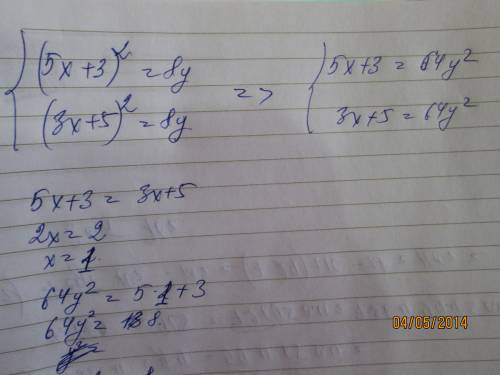 (5x+3)² = 8y => 5x+3 = 64y²
(3x+5)² = 8y 3x+5 = 64y²
5x+3 = 3x+5
2x = 2
x = 1
64y² = 5·1+3
64y² = 8
04/05/2014